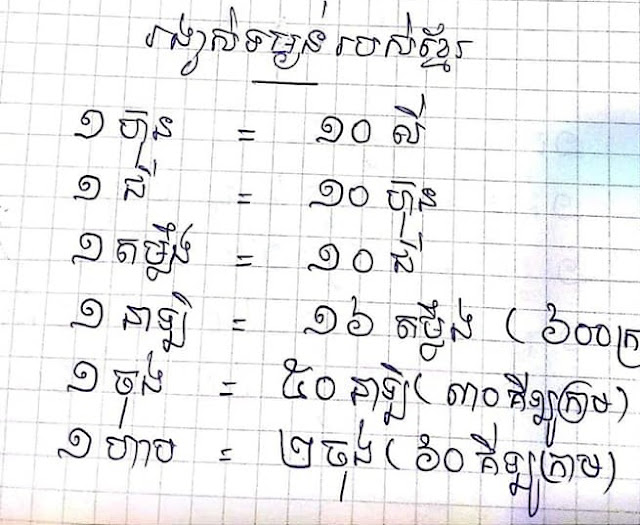 រង្វាស់ទម្ងន់ របស់ខ្មែរ
១ ហ៊ុន = ១០ លី
១ ជី = ១០ ហ៊ុន
១ តម្លឹង = ១០ ជី
១ នាឡិ = ១៦ តម្លឹង ( ៦០០ក្រ
១ ចុង = ៥០ នាឡិ ( ៣០ គីឡូក្រាម)
១ ហាប = ២ ចុង ( ៦០ គីឡូក្រាម)